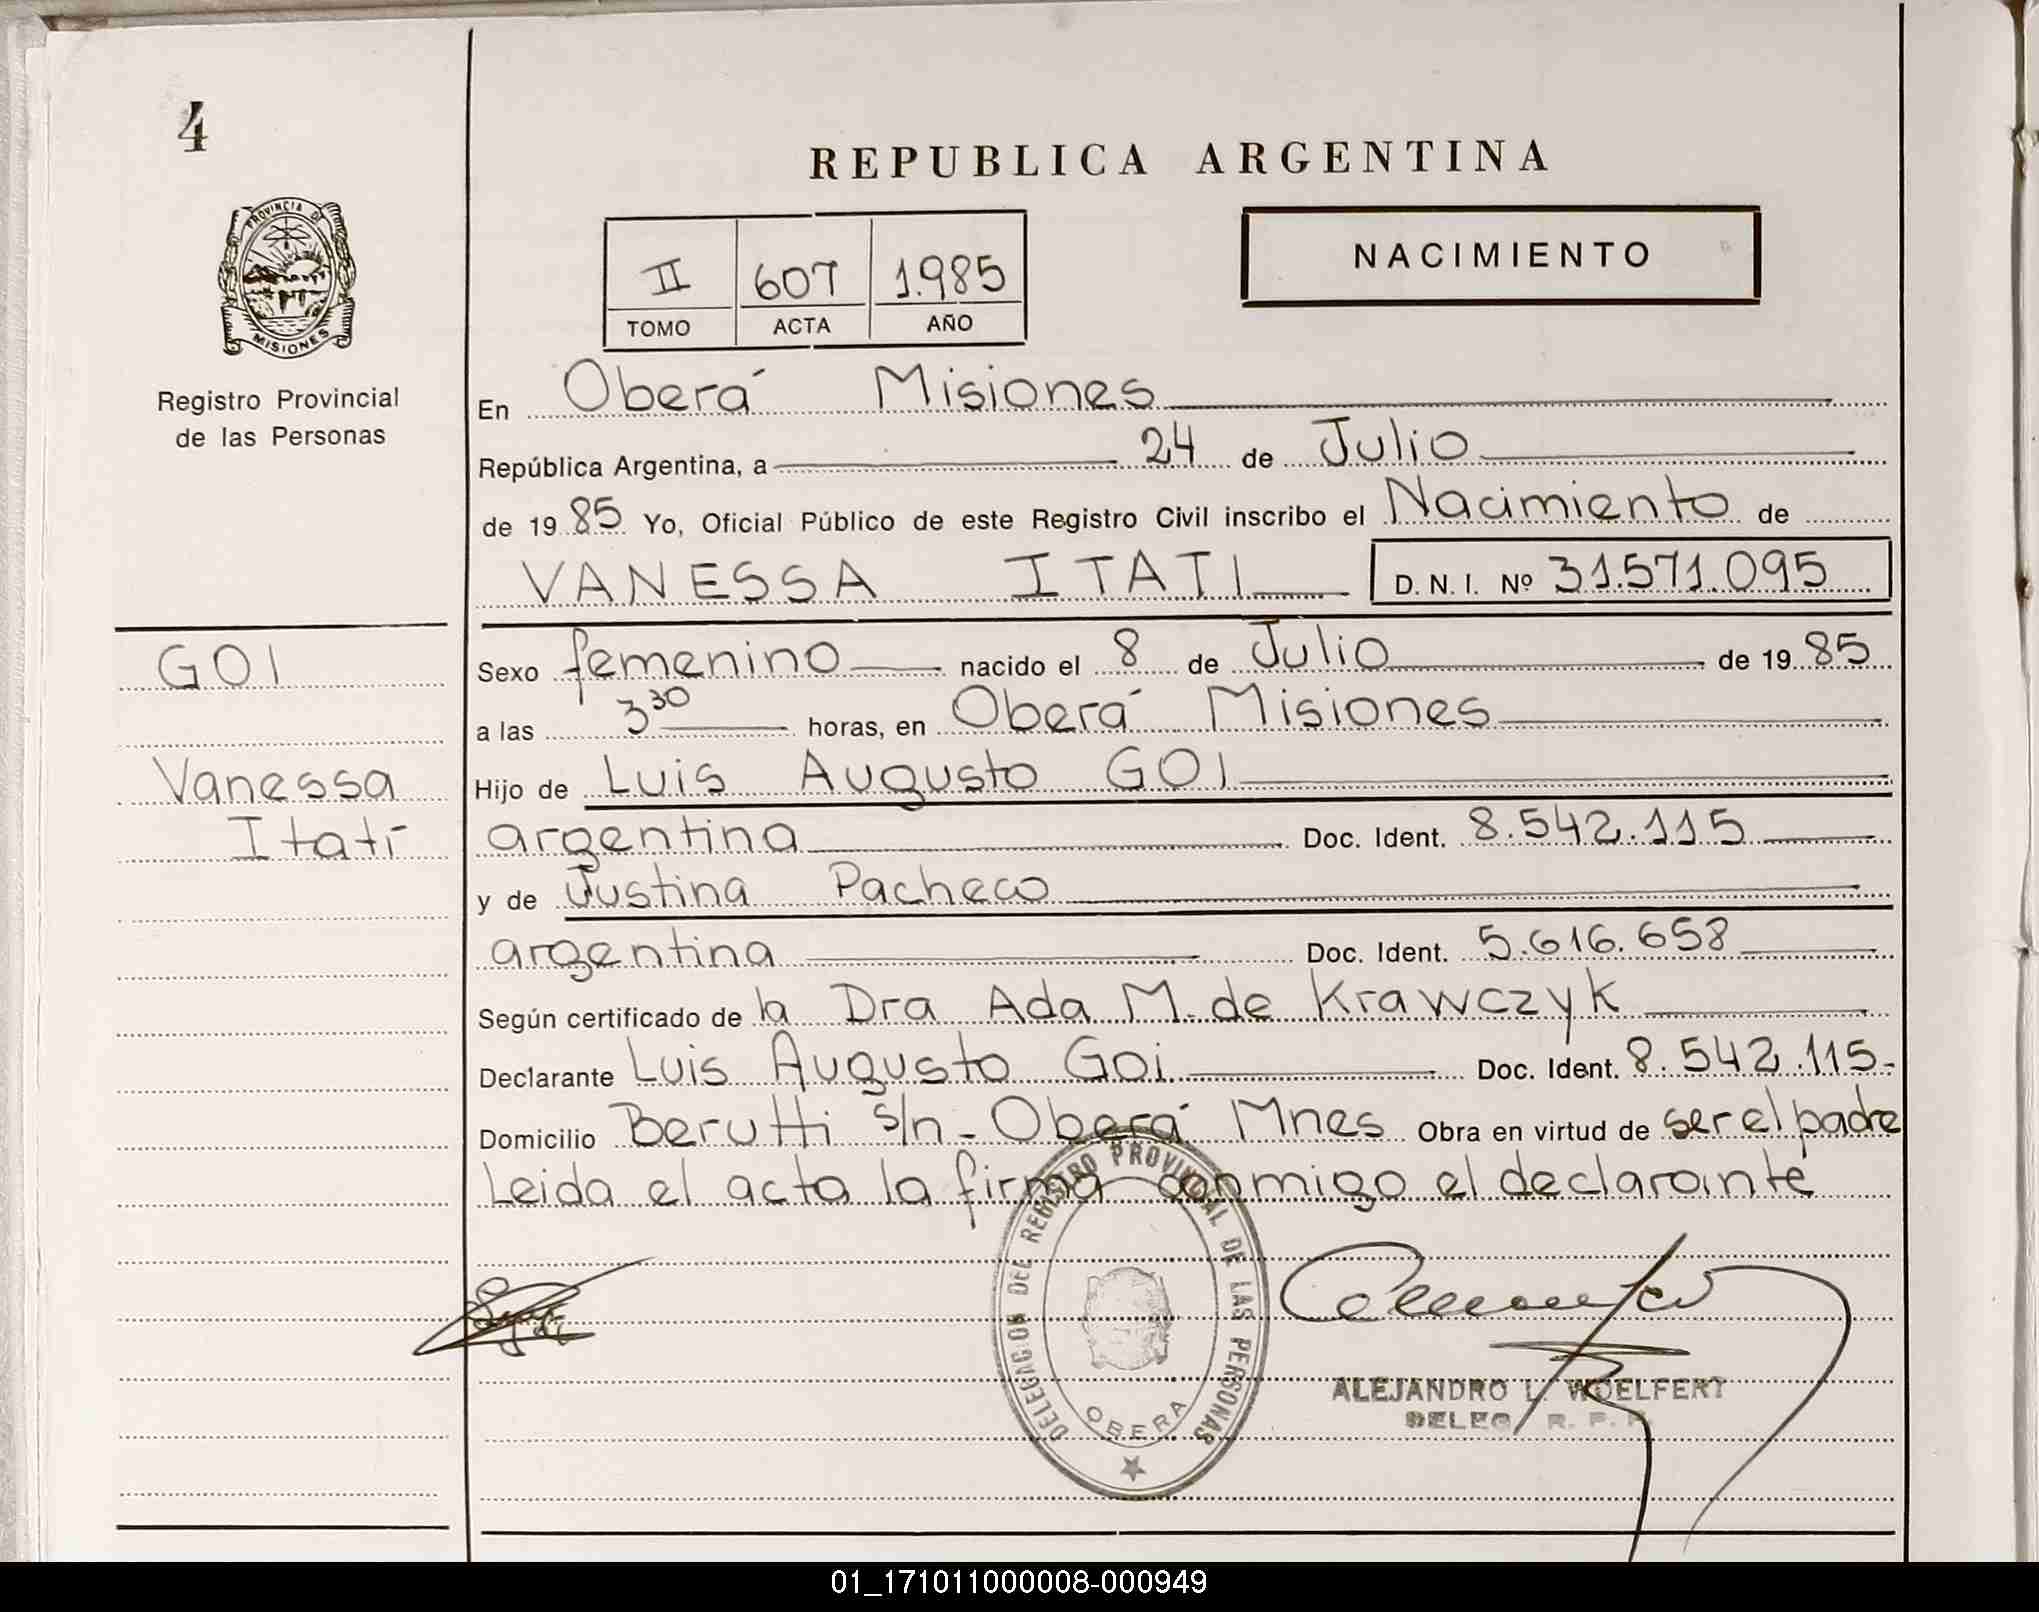 4
PROVINCIA DE
MISIONES
Registro Provincial
de las Personas
REPUBLICA ARGENTINA
II 607 1.985
TOMO ACTA AÑO
NACIMIENTO
En Oberá Misiones
República Argentina, a 24 de Julio
de 19 85 Yo, Oficial Público de este Registro Civil inscribo el Nacimiento de
VANESSA ITATI D. N. I. Nº 31.571.095
GOI
Vanessa
Itatí
Sexo femenino nacido el 8 de Julio de 19 85
a las 3 30 horas, en Oberá Misiones
Hijo de Luis Augusto GOI
argentina Doc. Ident. 8.542.115
y de Justina Pacheco
argentina Doc. Ident. 5.616.658
Según certificado de la Dra Ada M. de Krawczyk
Declarante Luis Augusto Goi Doc. Ident. 8.542.115-
Domicilio Berutti s/n - Oberá Mnes Obra en virtud de ser el padre
Leida el acta la firma conmigo el declarante
DELEGACION DEL REGISTRO PROVINCIAL DE LAS PERSONAS
OBERA
ALEJANDRO L. WOELFERT
DELEG. R. P. P.
01_171011000008-000949